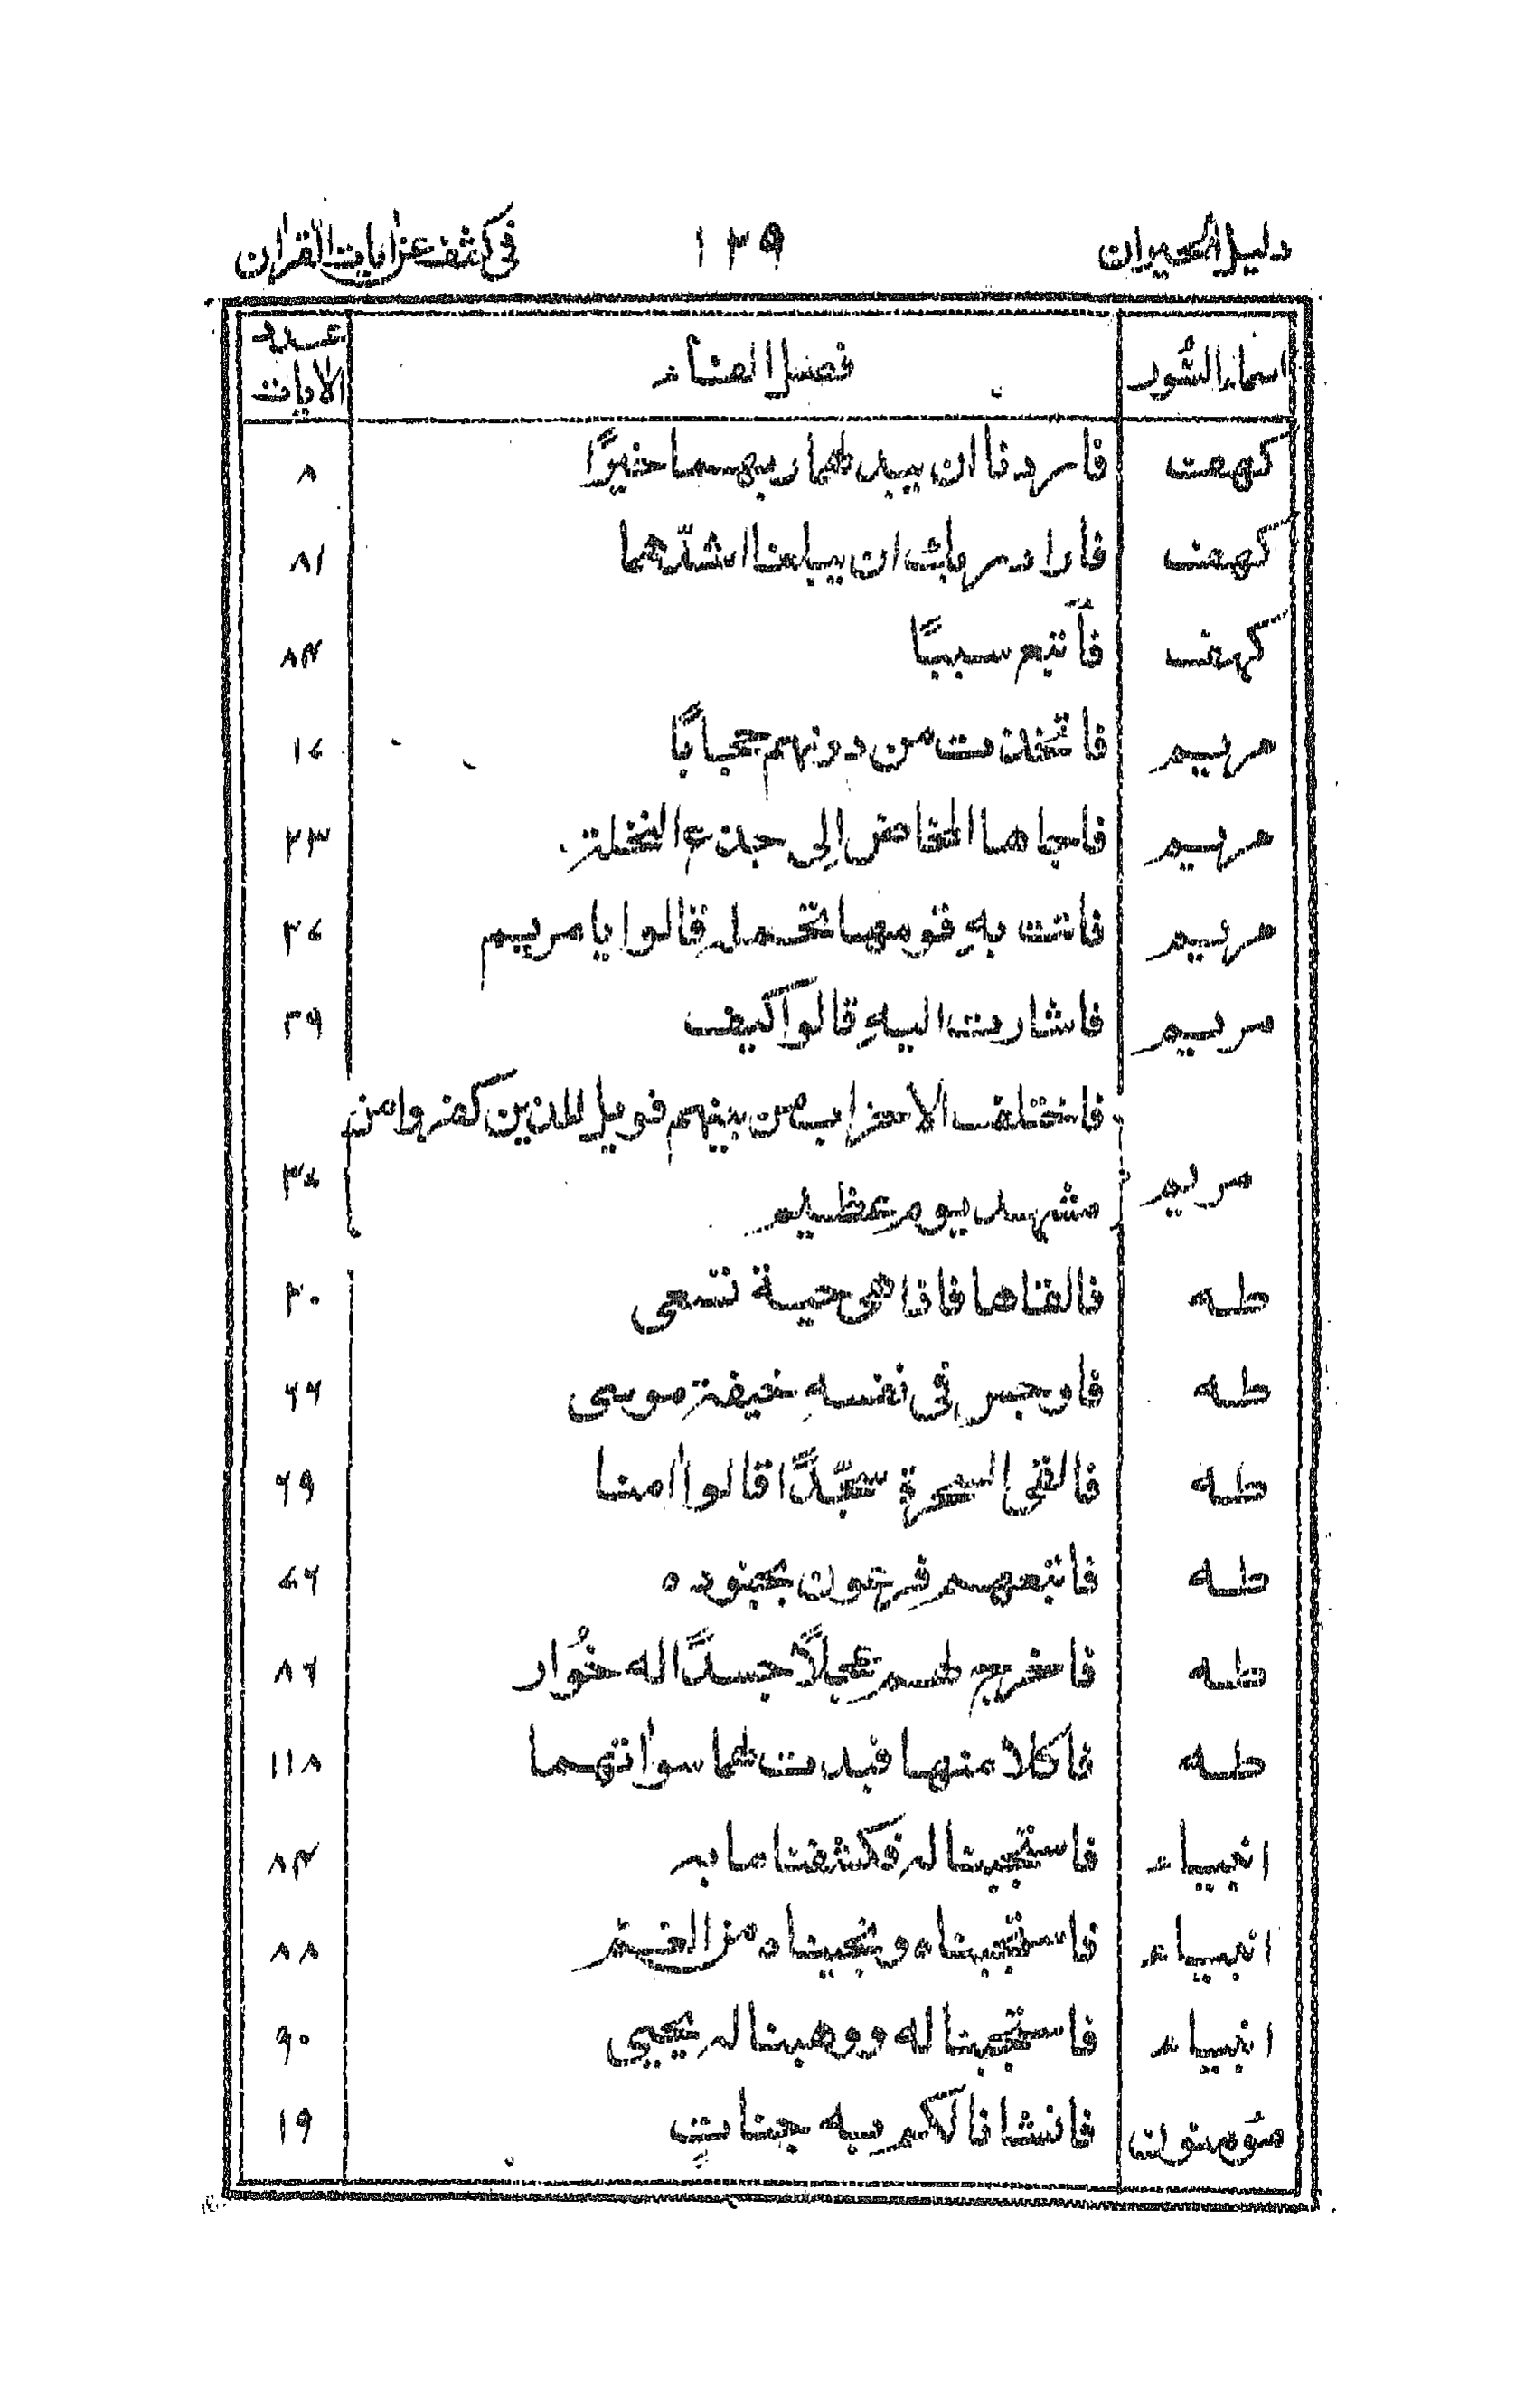 دليل الحيران ١٣٩ فى كشف عن ايات القران
اسماء السُّور فصل الفاء عدد الايات
كهف فاردنا ان يبدلهما ربهما خيرًا ٨
كهف فاراد ربك ان يبلغا اشدّهما ٨١
كهف فأتبع سببًا ٨٣
مريم فاتّخذت من دونهم حجابًا ١٧
مريم فاجاها المخاض الى جذع النخلة ٢٣
مريم فاتت بهِ قومها تحملهِ قالوا يا مريم ٢٧
مريم فاشارت اليهِ قالوا كيف ٢٩
فاختلف الاحزاب من بينهم فويل للذين كفروا من
مريم مشهد يوم عظيم ٣٧
طه فالقاها فاذا هى حية تسعى ٢٠
طه فاوجس فى نفسهِ خيفة موسى ٦٦
طه فالقى السحرة سجّدًا قالوا امنا ٦٩
طه فاتبعهم فرعون بجنوده ٧٦
طه فاخرج لهم عجلاً جسدًا له خُوار ٨٦
طه فاكلا منها فبدت لهما سواتهما ١١٨
انبياء فاستجبنا له فكشفنا ما به ٨٣
انبياء فاستجبناه ونجيناه من الغم ٨٨
انبياء فاستجبنا له ووهبنا له يحيى ٩٠
مؤمنون فانشانا لكم به جناتٍ ١٩